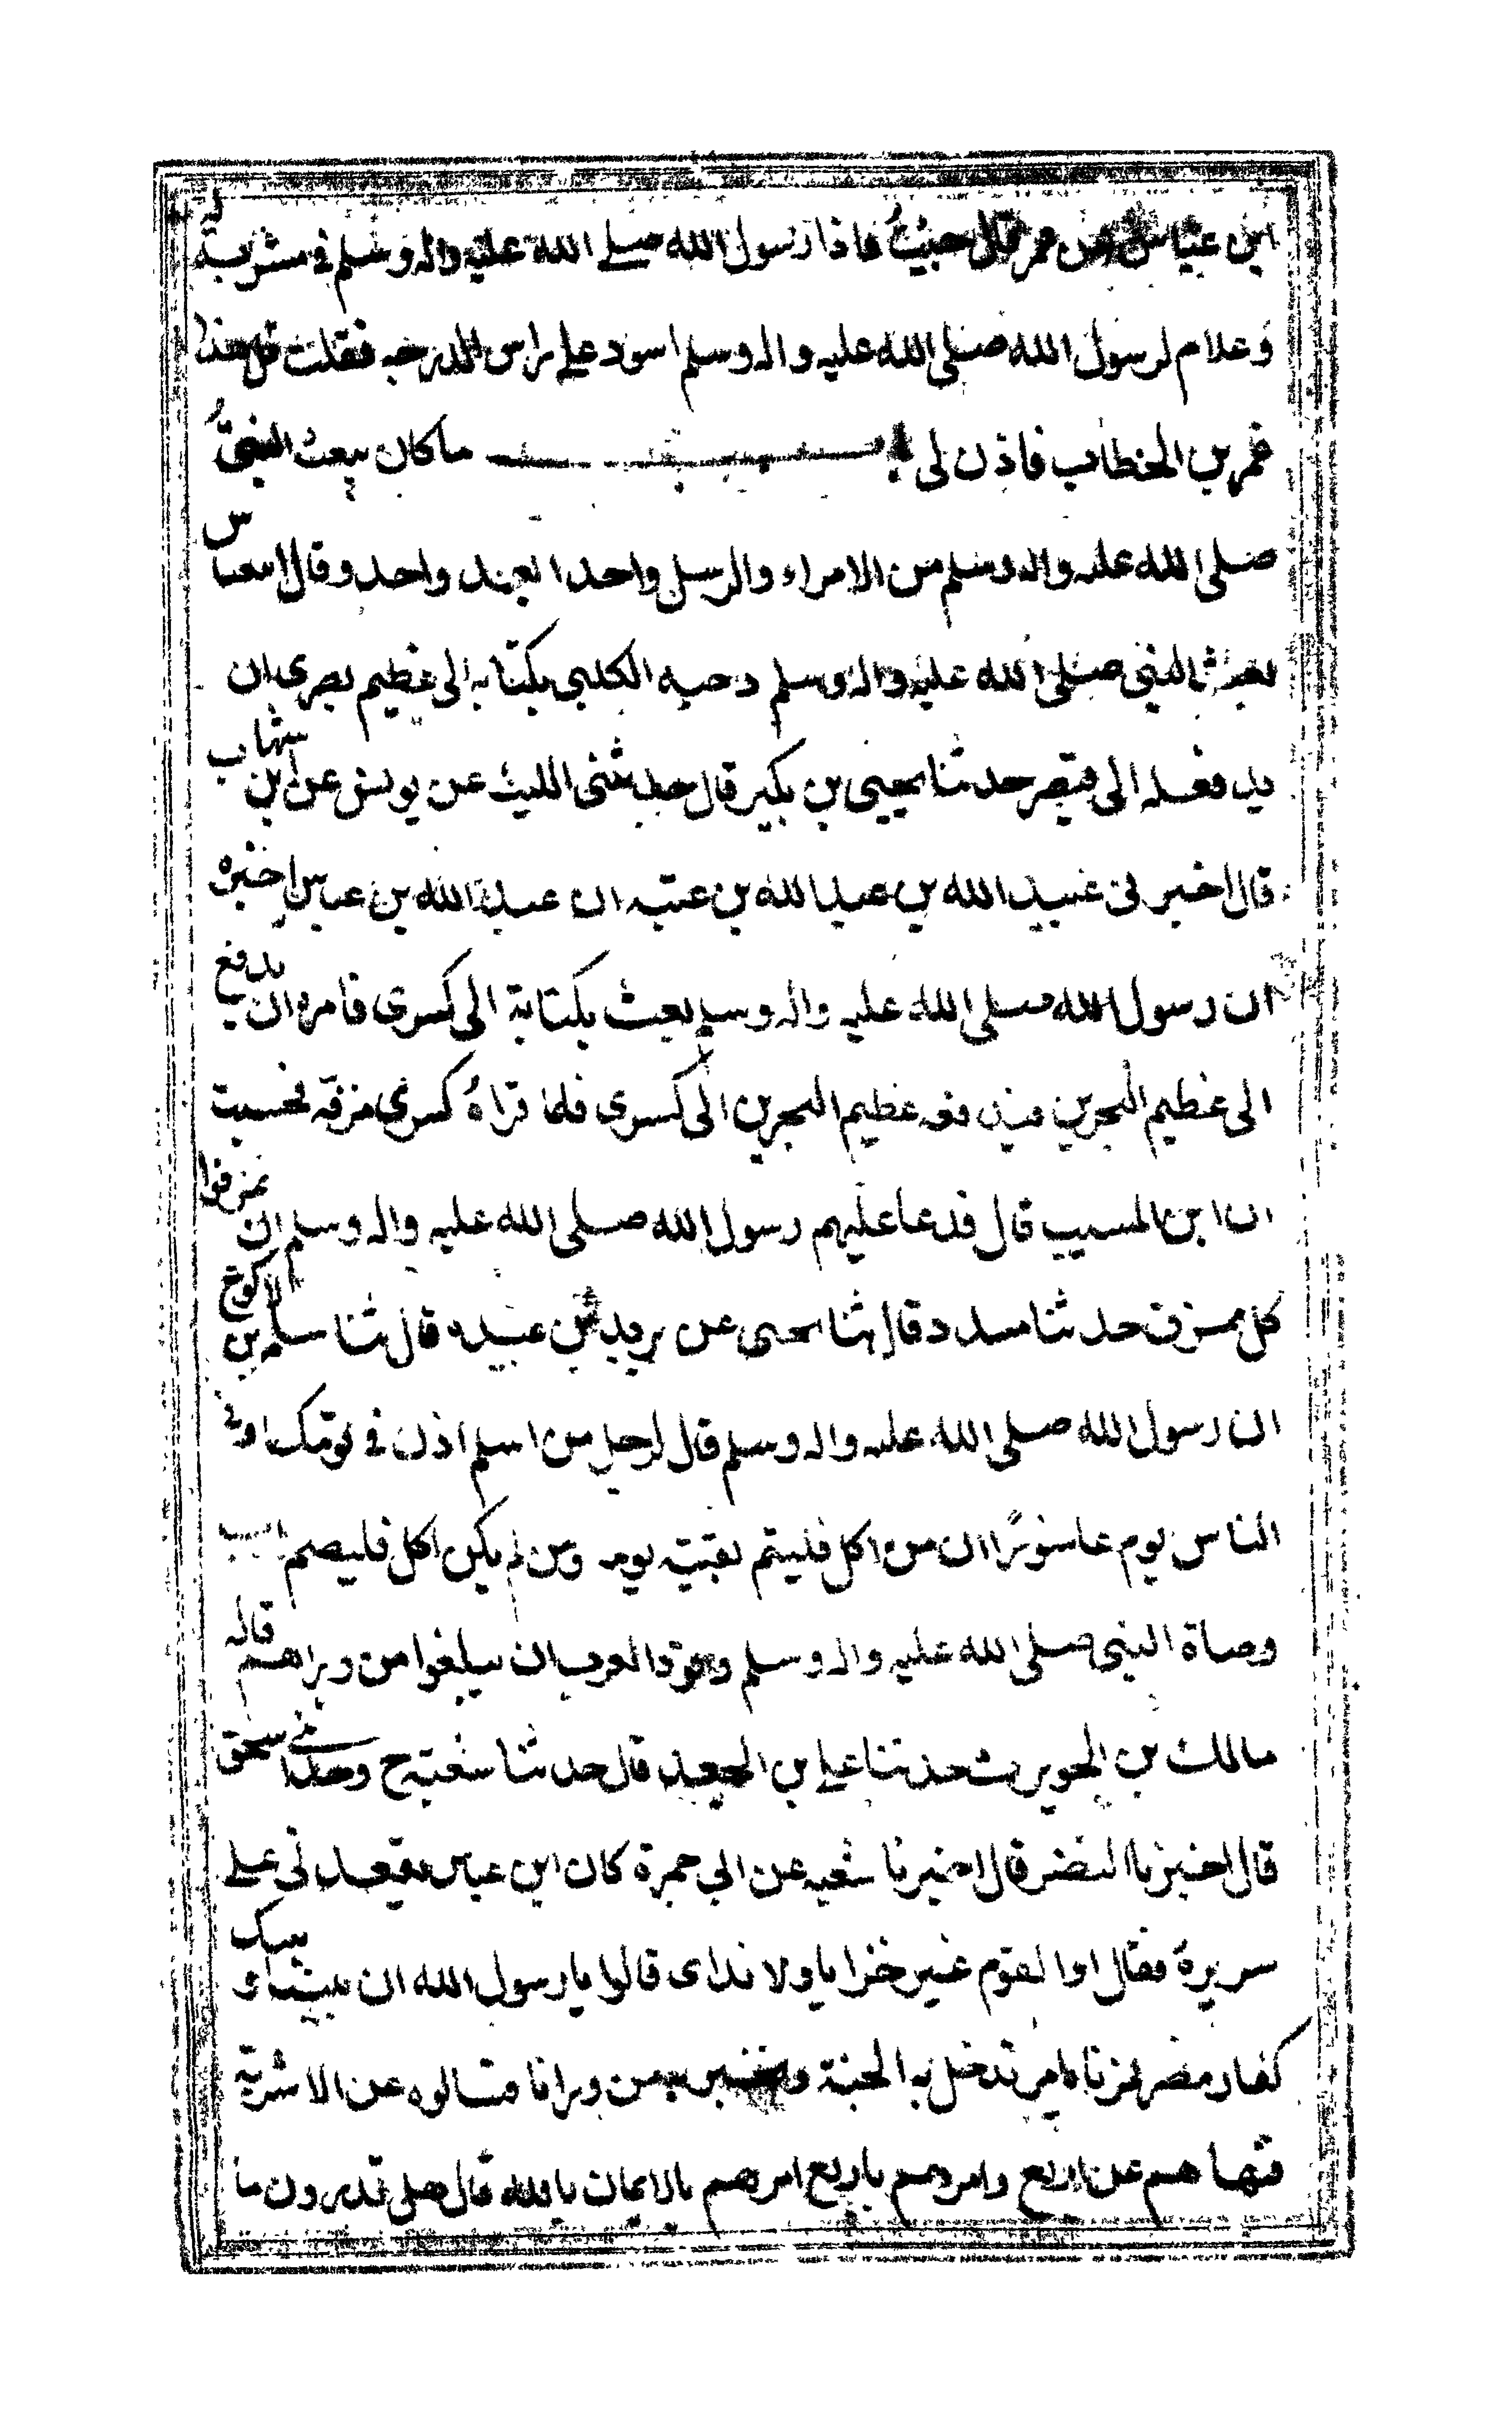 ابن عباس عن عمر قال جئت فاذا رسول الله صلى الله عليه واله وسلم في مشربة له
وغلام لرسول الله صلى الله عليه واله وسلم اسود على راس الدرجه فقلت قل هذا
عمر بن الخطاب فاذن لى باب ما كان يبعث النبىُّ
صلى الله عليه واله وسلم من الامراء والرسل واحدا بعد واحد وقال ابن عباس
بعث النبي صلى الله عليه واله وسلم دحيه الكلبى بكتابه الى عظيم بصرى ان
يدفعه الى قيصر حدثنا يحيى بن بكير قال حدثنى الليث عن يونس عن ابن شهاب
قال اخبرنى عبيد الله بن عبدالله بن عتبه ان عبد الله بن عباس اخبره
ان رسول الله صلى الله عليه واله وسلم بعث بكتابة الى كسرى فامره ان يدفع
الى عظيم البحرين فيدفعه عظيم البحرين الى كسرى فلما قراهُ كسرى مزقه فحسبت
ان ابن المسيب قال فدعا عليهم رسول الله صلى الله عليه واله وسلم ان يمزقوا
كل ممزق حدثنا مسدد قال ثنا يحيى عن يزيد بن عبيده قال ثنا سلمه بن الاكوع
ان رسول الله صلى الله عليه واله وسلم قال لرجل من اسلم اذن في قومك او في
الناس يوم عاشورًا ان من اكل فليتم بقيته يومه ومن لم يكن اكل فليصم باب
وصاة النبى صلى الله عليه واله وسلم وفود العرب ان يبلغوا من وراهم قاله
مالك بن الحويرث حدثنا على بن الجعيد قال حدثنا شعبة ح وحدثنى اسحق
قال اخبرنا النضر قال اخبرنا شعبه عن ابي جمرة كان ابن عباس يقعدنى على
سريرهُ فقال اوا لقوم غير خزايا ولا نداى قالوا يا رسول الله ان بيننا وبينك
كفار مضر فمرنا بامر ندخل به الجنة ونخبر به من وراانا فسالوه عن الاشربة
فنهاهم عن اربع وامرهم باربع امرهم بالايمان بالله قال هل تدرون ما